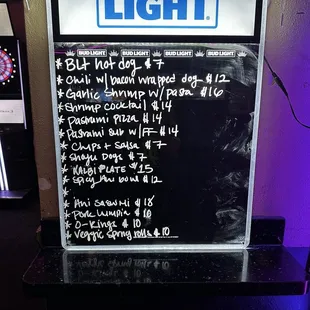 LIGHT
BUD LIGHT BUD LIGHT BUD LIGHT BUD LIGHT
* BLT hot dog $7
* Chili w/ bacon wrapped dog $12
* Garlic Shrimp w/ pasta $16
* Shrimp cocktail $14
* Pastrami pizza $14
* Pastrami sub w/ FF $14
* Chips + Salsa $7
* Shoyu Dogs $7
* KALBI PLATE $15
* Spicy Ahi bowl $12
*
* Ahi Sashimi $18
* Pork lumpia $10
* O-Rings $10
* Veggie Spring rolls $10